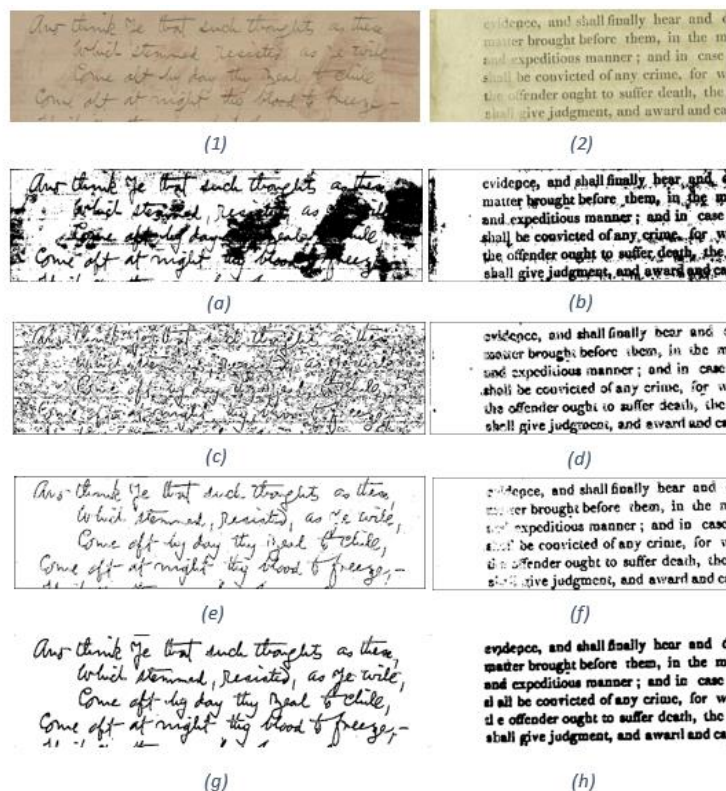 And think Ye that such thoughts as these
Which stemmed, resisted, as ye will
Come oft by day thy Zeal to chill
Come oft at night thy blood to freeze,—
(1)
evidence, and shall finally hear and d
matter brought before them, in the m
and expeditious manner; and in case
shall be convicted of any crime, for w
the offender ought to suffer death, the
shall give judgment, and award and ca
(2)
And think Ye that such thoughts as these
Which stemmed, resisted, as will
Come oft by day zeal chill
Come oft at night thy blood to freeze,
(a)
evidence, and shall finally hear and d
matter brought before them, in the m
and expeditious manner; and in case
shall be convicted of any crime, for w
the offender ought to suffer death, the
shall give judgment, and award and ca
(b)
And think Ye that such thoughts as these
Which stemmed, resisted, as ye will
Come oft by day thy Zeal to chill,
Come oft at night thy blood to freeze
(c)
evidence, and shall finally hear and d
matter brought before them, in the m
and expeditious manner; and in case
shall be convicted of any crime, for w
the offender ought to suffer death, the
shall give judgment, and award and ca
(d)
And think Ye that such thoughts as these,
Which stemmed, resisted, as Ye will,
Come oft by day thy Zeal to chill,
Come oft at night thy blood to freeze,—
(e)
evidence, and shall finally hear and
er brought before them, in the m
expeditious manner; and in case
be convicted of any crime, for w
offender ought to suffer death, the
give judgment, and award and ca
(f)
And think Ye that such thoughts as these,
Which stemmed, resisted, as Ye will,
Come oft by day thy Zeal to chill,
Come oft at night thy blood to freeze,—
(g)
evidence, and shall finally hear and d
matter brought before them, in the m
and expeditious manner; and in case
all be convicted of any crime, for w
the offender ought to suffer death, the
shall give judgment, and award and ca
(h)